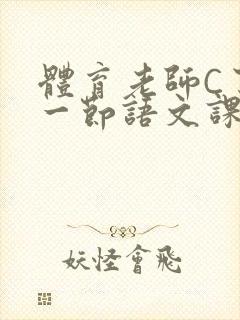 體育老師C
一節語文課
妖怪會飛